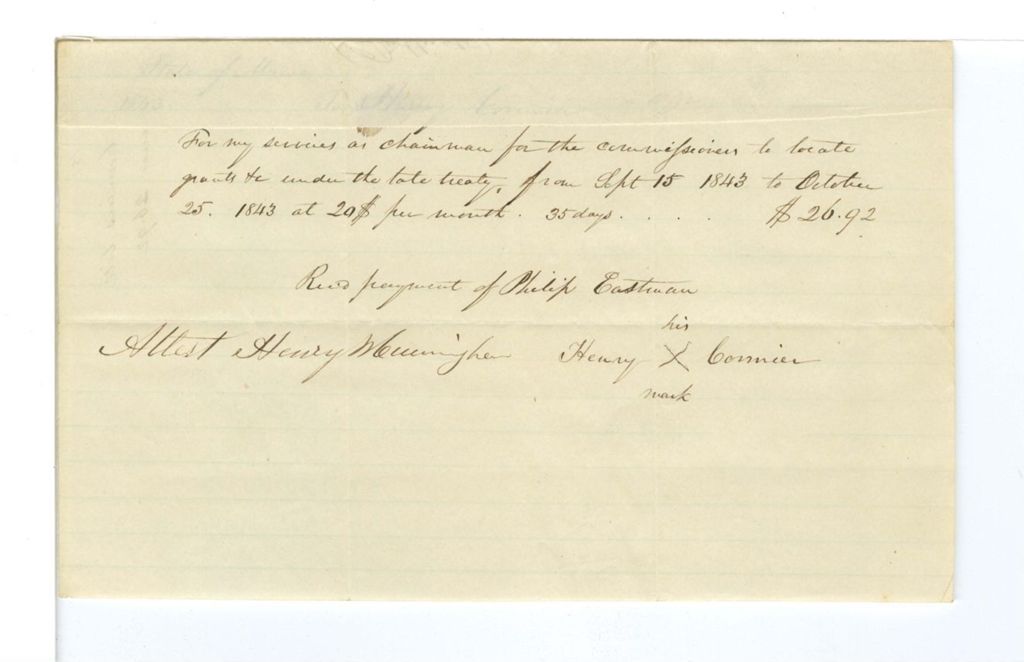 For my services as chainman for the commissioners to locate
grants &c under the late treaty, from Sept 15 1843 to October
25. 1843 at 20$ per month. 35 days. . . . $26.92
Recd payment of Philip Eastman
his
Attest Henry Henry X Cormier
mark